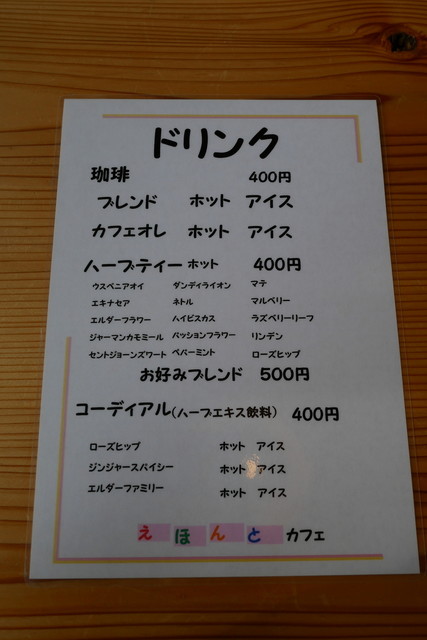 ドリンク
珈琲 400円
ブレンド ホット アイス
カフェオレ ホット アイス
ハーブティー ホット 400円
ウスベニアオイ ダンディライオン マテ
エキナセア ネトル マルベリー
エルダーフラワー ハイビスカス ラズベリーリーフ
ジャーマンカモミール パッションフラワー リンデン
セントジョーンズワート ペパーミント ローズヒップ
お好みブレンド 500円
コーディアル(ハーブエキス飲料) 400円
ローズヒップ ホット アイス
ジンジャースパイシー ホット アイス
エルダーファミリー ホット アイス
えほんとカフェ